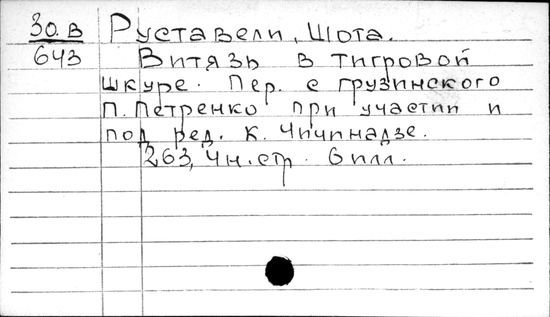 30.В Руставели, Шота.
643 Витязь в тигровой
шкуре. Пер. с грузинского
П. Петренко при участии и
под ред. К. Чичинадзе.
263, 4 н. стр. 6 илл.